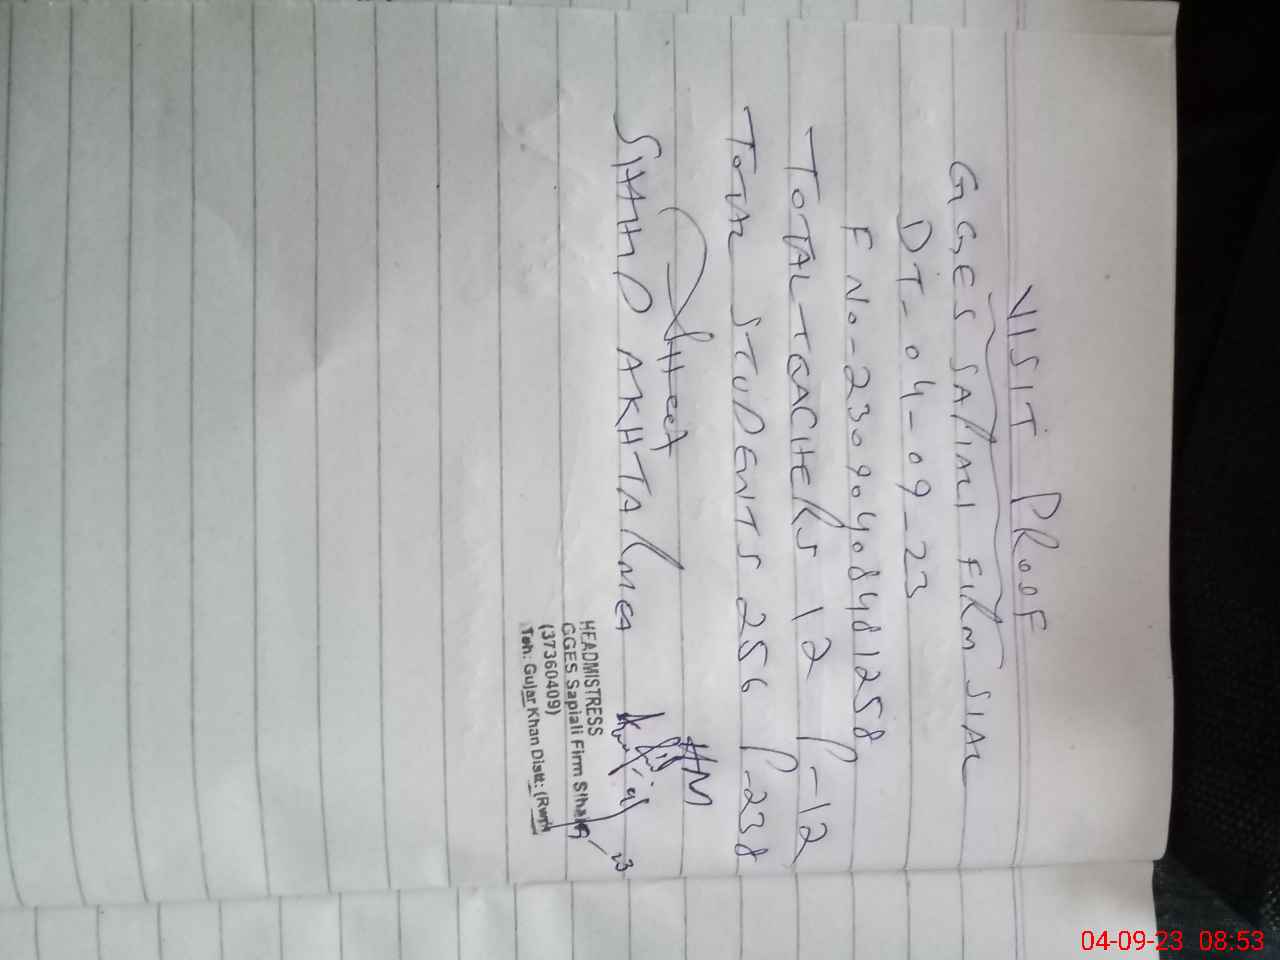 VISIT PROOF
GGES SAPIALI FIRM SIAL
DT- 04-09-23
F No- 23090408481258
TOTAL TEACHERS 12 P-12
TOTAL STUDENTS 256 P-238
HM
SHAHID AKHTAR MEA
HEADMISTRESS
GGES Sapiali Firm Sihal
(37360409)
Teh: Gujar Khan Distt: (Rwp)
04-09-23 08:53